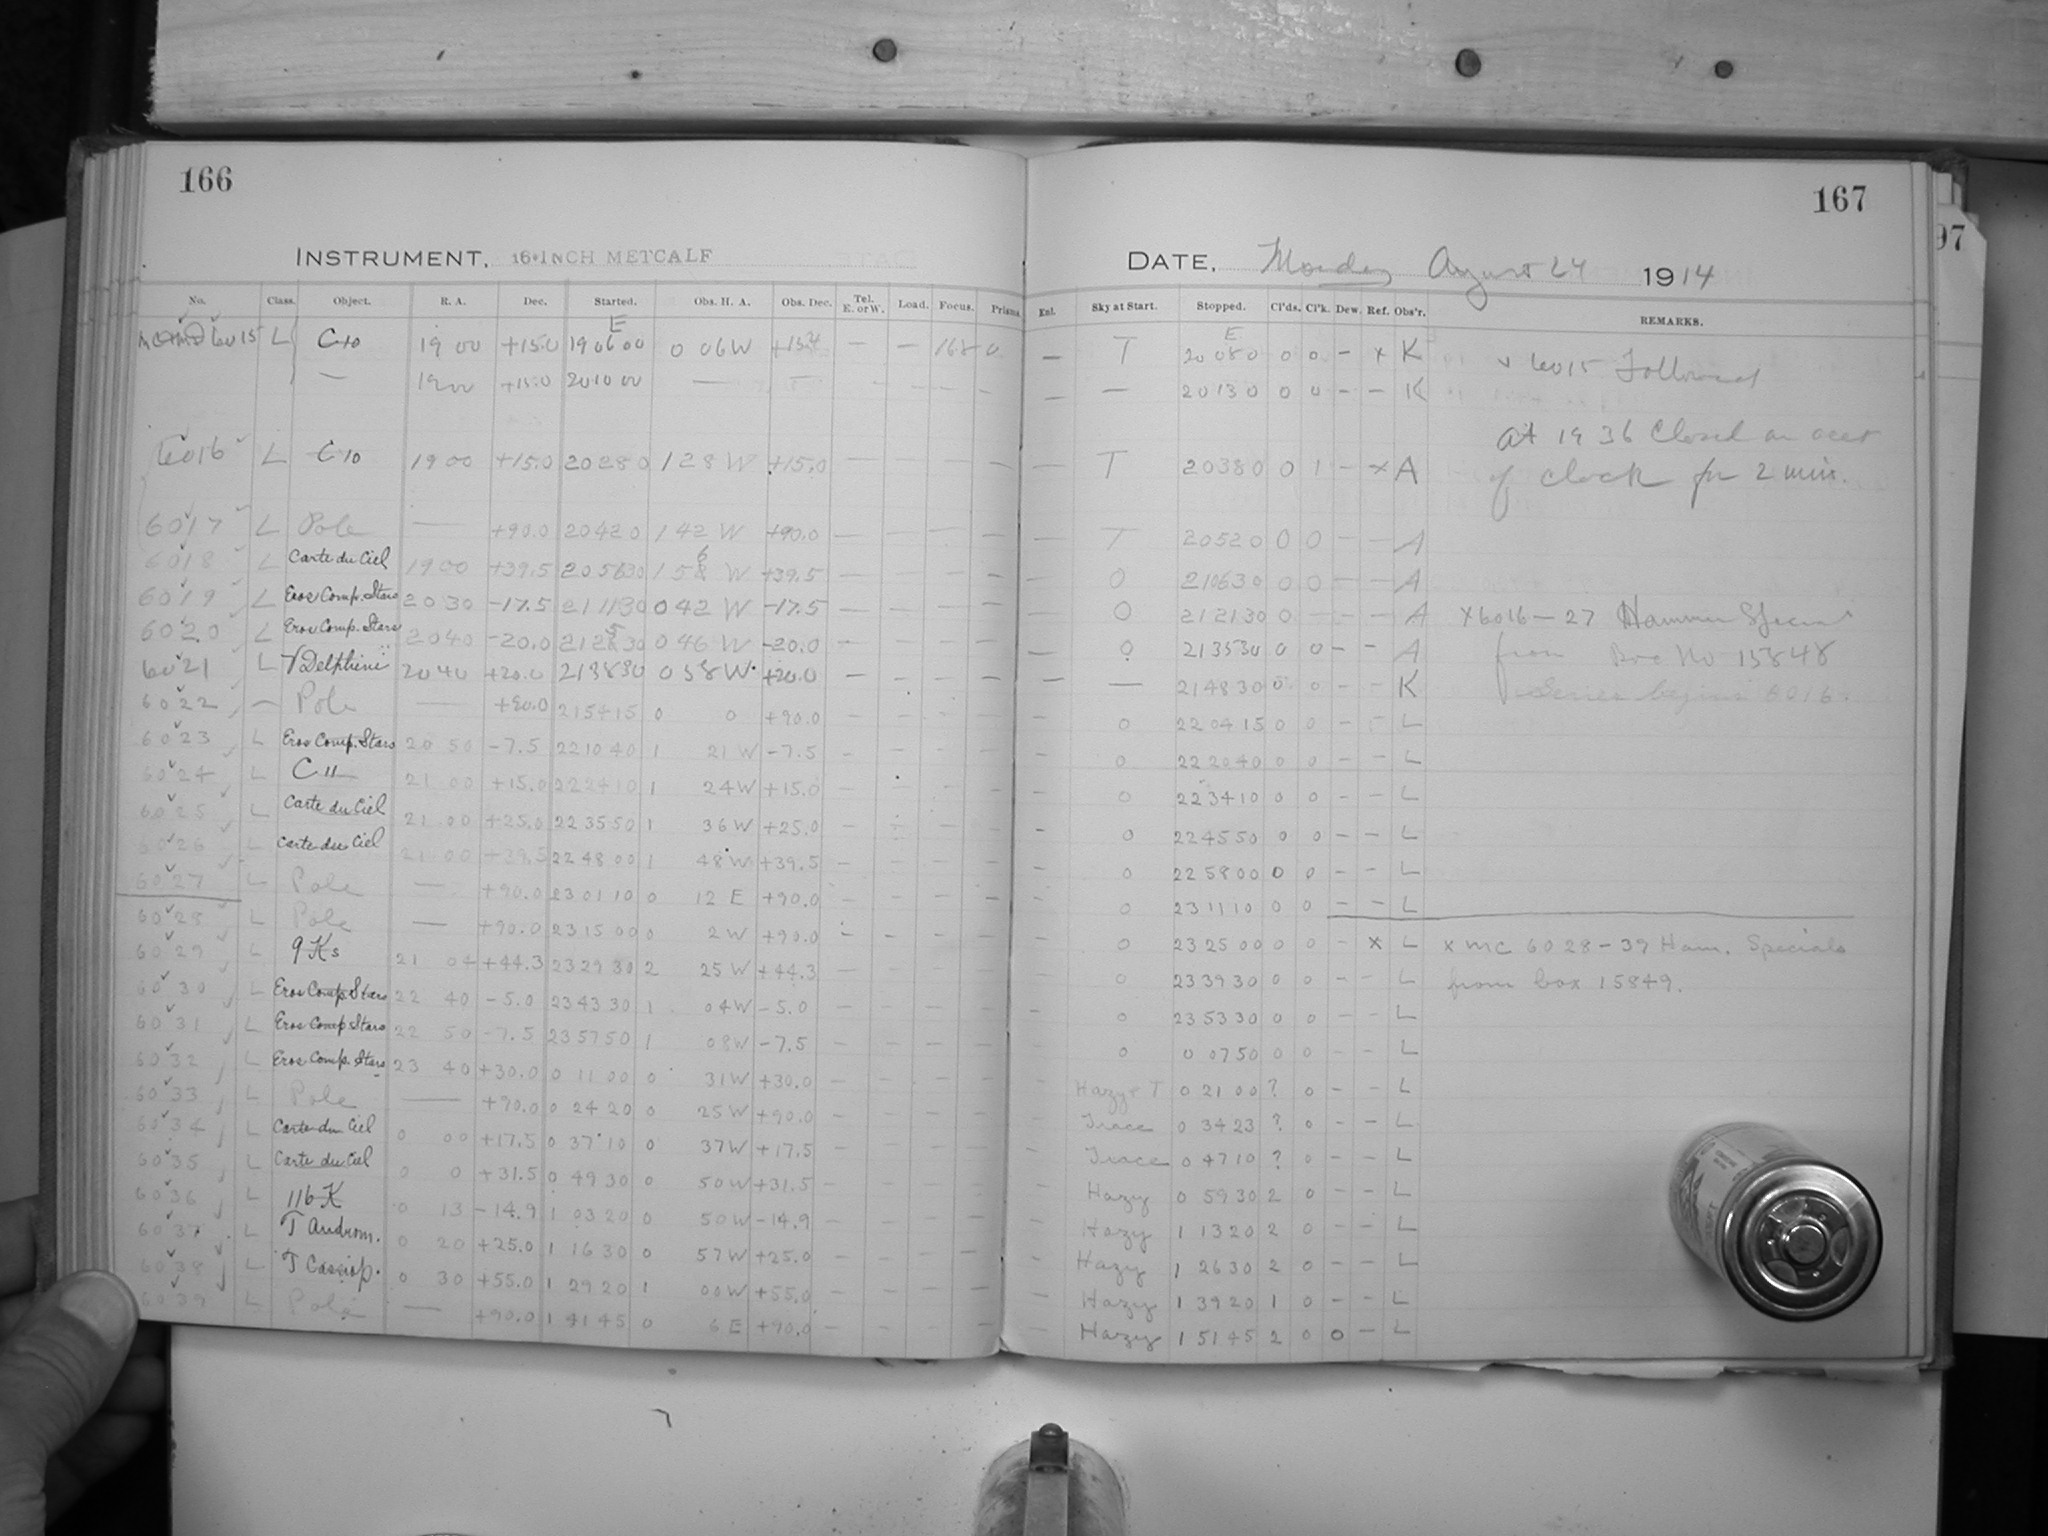 166
INSTRUMENT, 16-INCH METCALF
No. Class. Object. R. A. Dec. Started. Obs. H. A. Obs. Dec. Tel. E. or W. Load. Focus. Prisms.
6015 L C10 19 00 +15.0 19 06 00 0 06 W — — 0
E
— 19 00 +15.0 20 10 00 — — — — — —
6016 L C10 19 00 +15.0 20 28 0 1 28 W +15.0 — — — —
6017 L Pole — +90.0 20 42 0 1 42 W +90.0 — — — —
6018 L Carte du Ciel 19 00 +39.5 20 56 30 1 56 W +39.5 — — — —
6019 L Eros Comp. Stars 20 30 -17.5 21 11 30 0 42 W -17.5 — — — —
6020 L Eros Comp. Stars 20 40 -20.0 21 25 30 0 46 W -20.0 — — — —
6021 L V Delphini 20 40 +20.0 21 38 30 0 58 W +20.0 — — — —
6022 — Pole — +90.0 21 54 15 0 0 +90.0 — — — —
6023 L Eros Comp. Stars 20 50 -7.5 22 10 40 1 21 W -7.5 — — — —
6024 L C 11 21 00 +15.0 22 24 10 1 24 W +15.0 — — — —
6025 L Carte du Ciel 21 00 +25.0 22 35 50 1 36 W +25.0 — — — —
6026 L Carte du Ciel 21 00 +39.5 22 48 00 1 48 W +39.5 — — — —
6027 L Pole — +90.0 23 01 10 0 12 E +90.0 — — — —
6028 L Pole — +90.0 23 15 00 0 2 W +90.0 — — — —
6029 L 9 Ks 21 04 +44.3 23 29 30 2 25 W +44.3 — — — —
6030 L Eros Comp. Stars 22 40 -5.0 23 43 30 1 04 W -5.0 — — — —
6031 L Eros Comp Stars 22 50 -7.5 23 57 50 1 08 W -7.5 — — — —
6032 L Eros Comp. Stars 23 40 +30.0 0 11 00 0 31 W +30.0 — — — —
6033 L Pole — +90.0 0 24 20 0 25 W +90.0 — — — —
6034 L Carte du Ciel 0 00 +17.5 0 37 10 0 37 W +17.5 — — — —
6035 L Carte du Ciel 0 0 +31.5 0 49 30 0 50 W +31.5 — — — —
6036 L 116 K 0 13 -14.9 1 03 20 0 50 W -14.9 — — — —
6037 L T Androm. 0 20 +25.0 1 16 30 0 57 W +25.0 — — — —
6038 L T Cassiop. 0 30 +55.0 1 29 20 1 00 W +55.0 — — — —
6039 L Pole — +90.0 1 41 45 0 6 E +90.0 — — — —
167
DATE, Monday August 24 1914
Enl. Sky at Start. Stopped. Cl'ds. Cl'k. Dew. Ref. Obs'r. REMARKS.
E
— T 20 08 0 0 0 — x K x 6015 Followed
— — 20 13 0 0 0 — — K
At 19 36 Closed on acct
— T 20 38 0 0 1 — x A of clock for 2 min.
— T 20 52 0 0 0 — — A
— 0 21 06 30 0 0 — — A
0 21 21 30 0 — — — A x 6016—27 Hammer Special
— 0 21 35 30 0 0 — — A from Box No 15848
— — 21 48 30 0 0 — — K Series begins 6016.
— 0 22 04 15 0 0 — — L
— 0 22 20 40 0 0 — — L
— 0 22 34 10 0 0 — — L
— 0 22 45 50 0 0 — — L
— 0 22 58 00 0 0 — — L
— 0 23 11 10 0 0 — — L
— 0 23 25 00 0 0 — x L x MC 6028-39 Ham. Specials
— 0 23 39 30 0 0 — — L from box 15849.
— 0 23 53 30 0 0 — — L
— 0 0 07 50 0 0 — — L
— Hazy & T 0 21 00 ? 0 — — L
— Trace 0 34 23 ? 0 — — L
— Trace 0 47 10 ? 0 — — L
— Hazy 0 59 30 2 0 — — L
— Hazy 1 13 20 2 0 — — L
— Hazy 1 26 30 2 0 — — L
— Hazy 1 39 20 1 0 — — L
— Hazy 1 51 45 2 0 0 — L
97